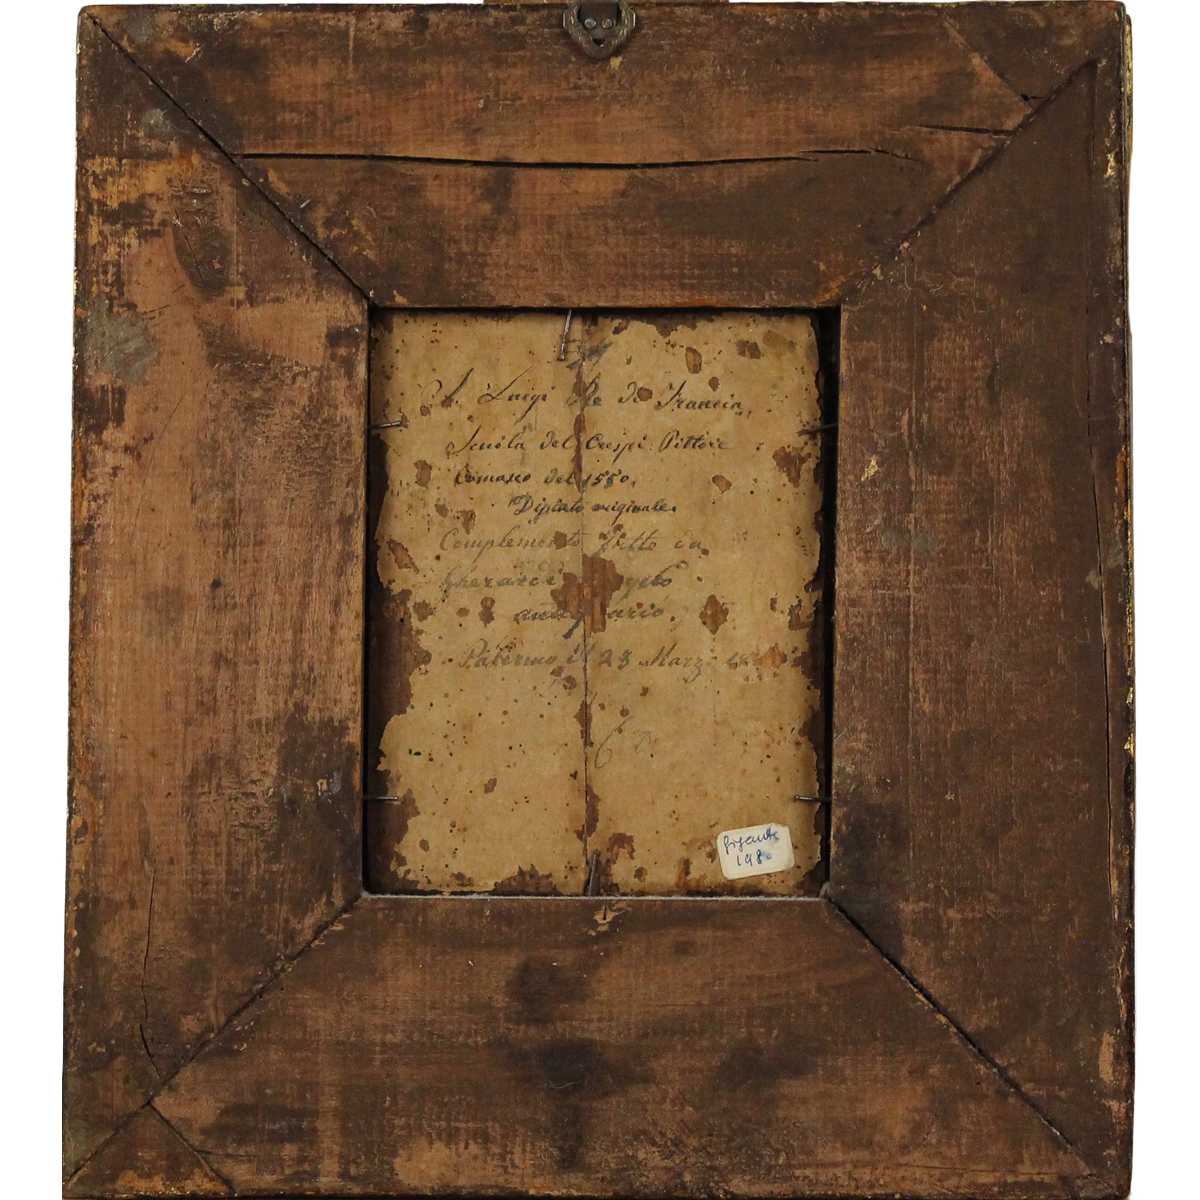 S. Luigi Re di Francia,
Scuola del Crespi Pittore
Comasco del 1550.
Dipinto originale.
Complemento fatto da
Gherardi
Palermo il 28 Marzo
Gigante
198